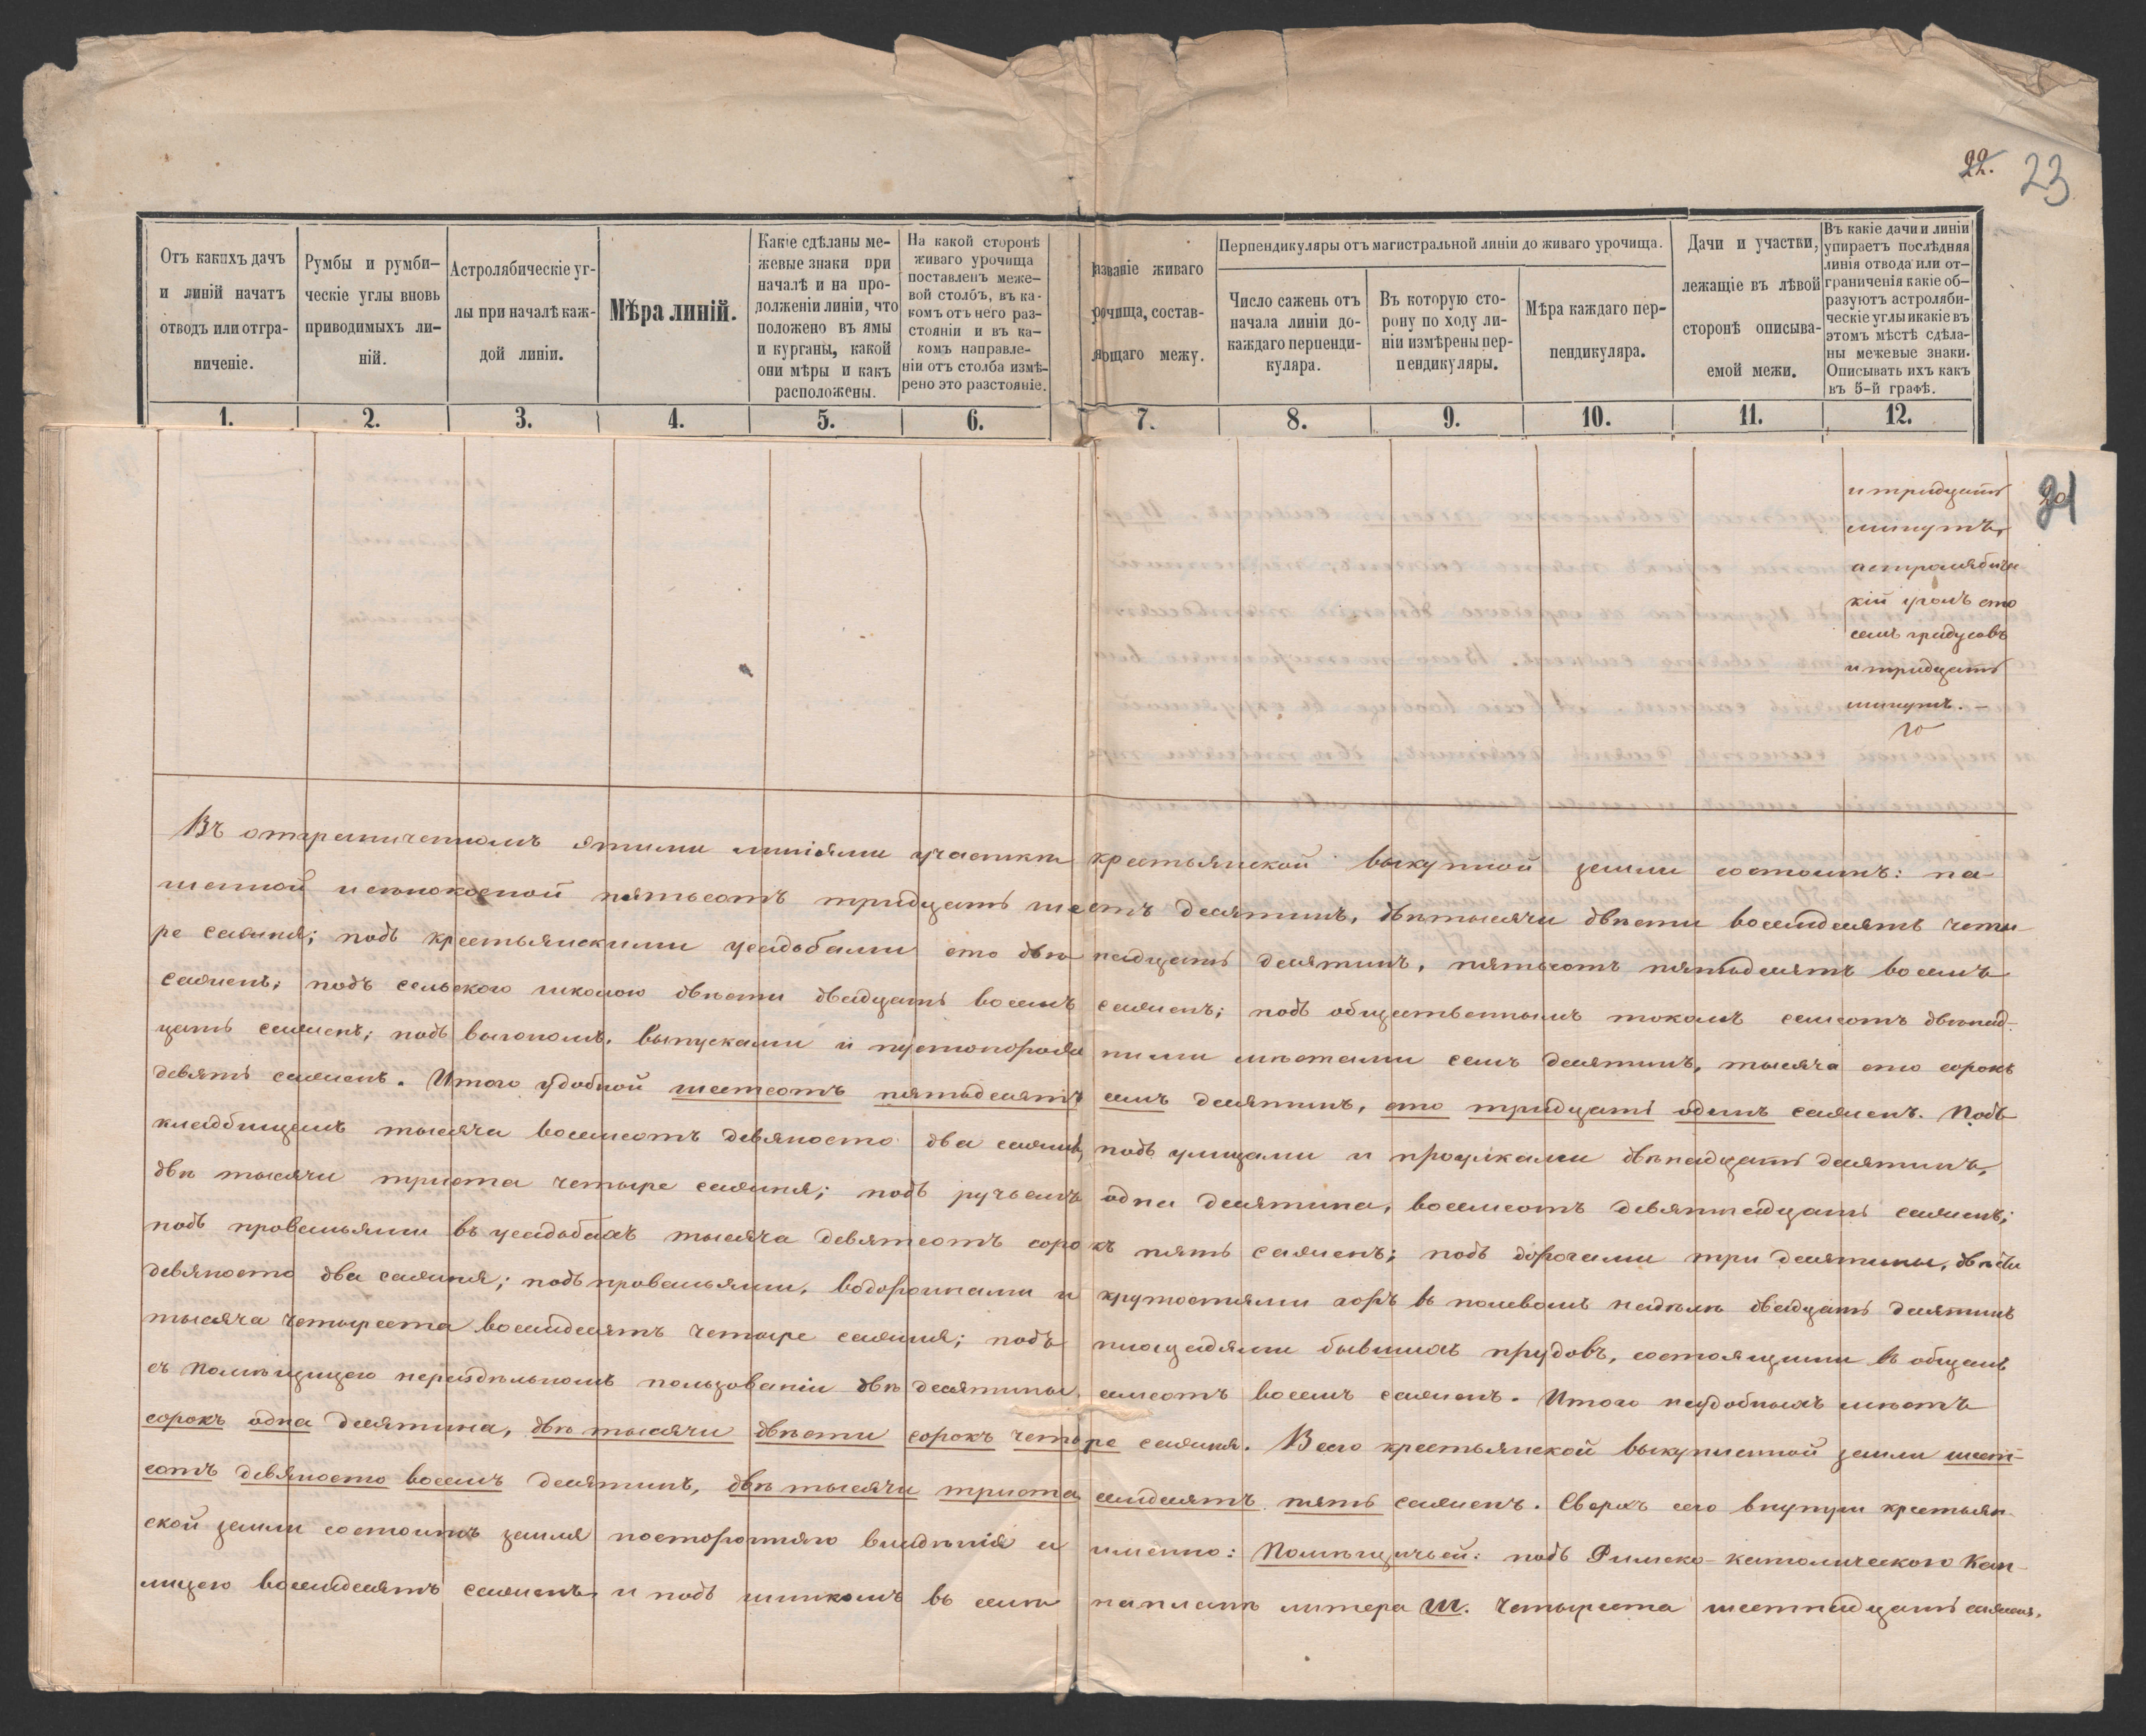 22. 23
Отъ какихъ дачъ и линій начатъ отводъ или отграниченіе.
Румбы и румбическіе углы вновь приводимыхъ линій.
Астролябическіе углы при началѣ каждой линіи.
Мѣра линій.
Какіе сдѣланы межевые знаки при началѣ и на продолженіи линіи, что положено въ ямы и курганы, какой они мѣры и какъ расположены.
На какой сторонѣ живаго урочища поставленъ межевой столбъ, въ какомъ отъ него разстояніи и въ какомъ направленіи отъ столба измѣрено это разстояніе.
азваніе живаго рочища, составяющаго межу.
Перпендикуляры отъ магистральной линіи до живаго урочища.
Число сажень отъ начала линіи до каждаго перпендикуляра.
Въ которую сторону по ходу линіи измѣрены перпендикуляры.
Мѣра каждаго перпендикуляра.
Дачи и участки, лежащіе въ лѣвой сторонѣ описываемой межи.
Въ какіе дачи и линіи упираетъ послѣдняя линія отвода или отграниченія какіе образуютъ астролябическіе углы и какіе въ этомъ мѣстѣ сдѣланы межевые знаки. Описывать ихъ какъ въ 5-й графѣ.
1. 2. 3. 4. 5. 6. 7. 8. 9. 10. 11. 12.
и тридцать
минутъ,
астролябиче
кій уголъ сто
семь градусовъ
и тридцать
минутъ. —
Въ отграниченномъ этими линіями участкѣ крестьянской выкупной земли состоитъ: па-
шенной и сѣнокосной пятьсотъ тридцать шесть десятинъ, двѣ тысячи двѣсти восемдесятъ четы
ре сажня; подъ крестьянскими усадьбами сто двѣнадцать десятинъ, пятьсотъ пятьдесятъ восемь
сажень; подъ сельскою школою двѣсти двадцать восемь сажень; подъ общественнымъ токомъ семсотъ двѣнад-
цать сажень; подъ выгономъ, выпусками и пустопорожними мѣстами семь десятинъ, тысяча сто сорокъ
девять сажень. Итого удобной шестсотъ пятьдесятъ семь десятинъ, сто тридцать одинъ сажень. Подъ
кладбищемъ тысяча восемсотъ девяносто два сажня, подъ улицами и проулками двѣнадцать десятинъ,
двѣ тысячи триста четыре сажня; подъ ручьемъ одна десятина, восемсотъ девятнадцать сажень;
подъ провальями въ усадьбахъ тысяча девятсотъ сорокъ пять сажень; подъ дорогами три десятины, двѣсти
девяносто два сажня; подъ провальями, водороинами и крутостями горъ въ полевомъ надѣлѣ двадцать десятинъ
тысяча четыреста восемдесятъ четыре сажня; подъ площадями бывшихъ прудовъ, состоящими въ общемъ
съ помѣщицею нераздѣльномъ пользованіи двѣ десятины, семсотъ восемь сажень. Итого неудобныхъ мѣстъ
сорокъ одна десятина, двѣ тысячи двѣсти сорокъ четыре сажня. Всего крестьянской выкупленной земли шест-
сотъ девяносто восемь десятинъ, двѣ тысячи триста семдесятъ пять сажень. Сверхъ сего внутри крестьян-
ской земли состоитъ земля посторонняго владѣнія а именно: Помѣщичьей: подъ Римско-католическою Кап-
лицею восемдесятъ сажень и подъ шинкомъ въ селѣ на планѣ литера Ш. четыреста шестнадцать сажень.